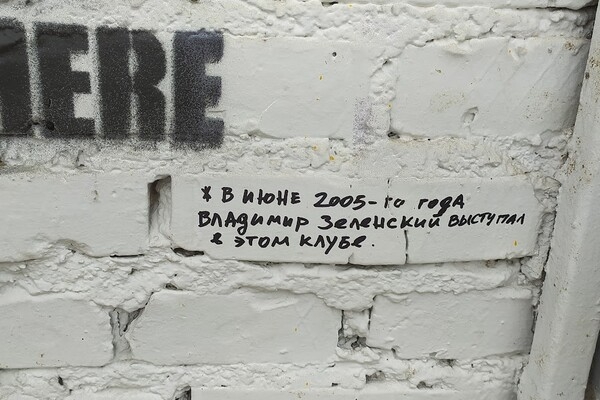 HERE
* В ИЮНЕ 2005-го года
Владимир Зеленский выступал
в этом клубе.